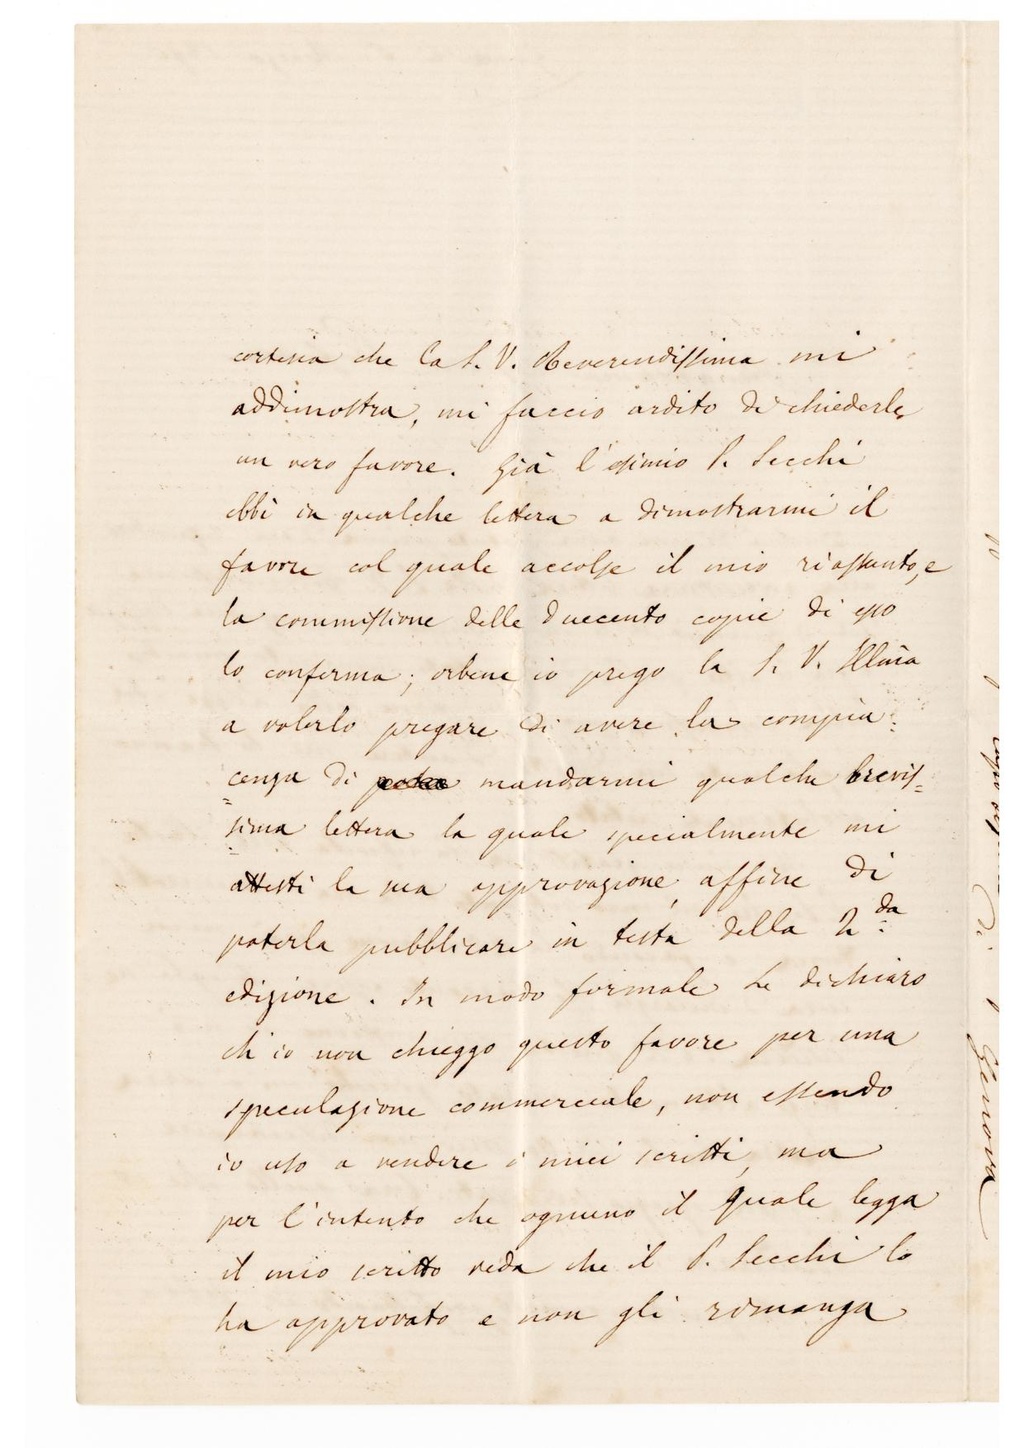 cortesia che la S. V. Reverendissima mi
addimostra, mi faccio ardito di chiederle
un vero favore. Già l'esimio P. Secchi
ebbi in qualche lettera a dimostrarmi il
favore col quale accolse il mio riassunto, e
la commissione delle duecento copie di esso
lo conferma; orbene io prego la S. V. Illma
a volerlo pregare di avere la compia=
cenza di mandarmi qualche brevis=
sima lettera la quale specialmente mi
attesti la sua approvazione, affine di
poterla pubblicare in testa della 2.da
edizione. In modo formale Le dichiaro
ch'io non chieggo questo favore per una
speculazione commerciale, non essendo
io uso a vendere i miei scritti, ma
per l'intento che ognuno il quale legga
il mio scritto veda che il P. Secchi lo
ha approvato e non gli rimanga
Genova